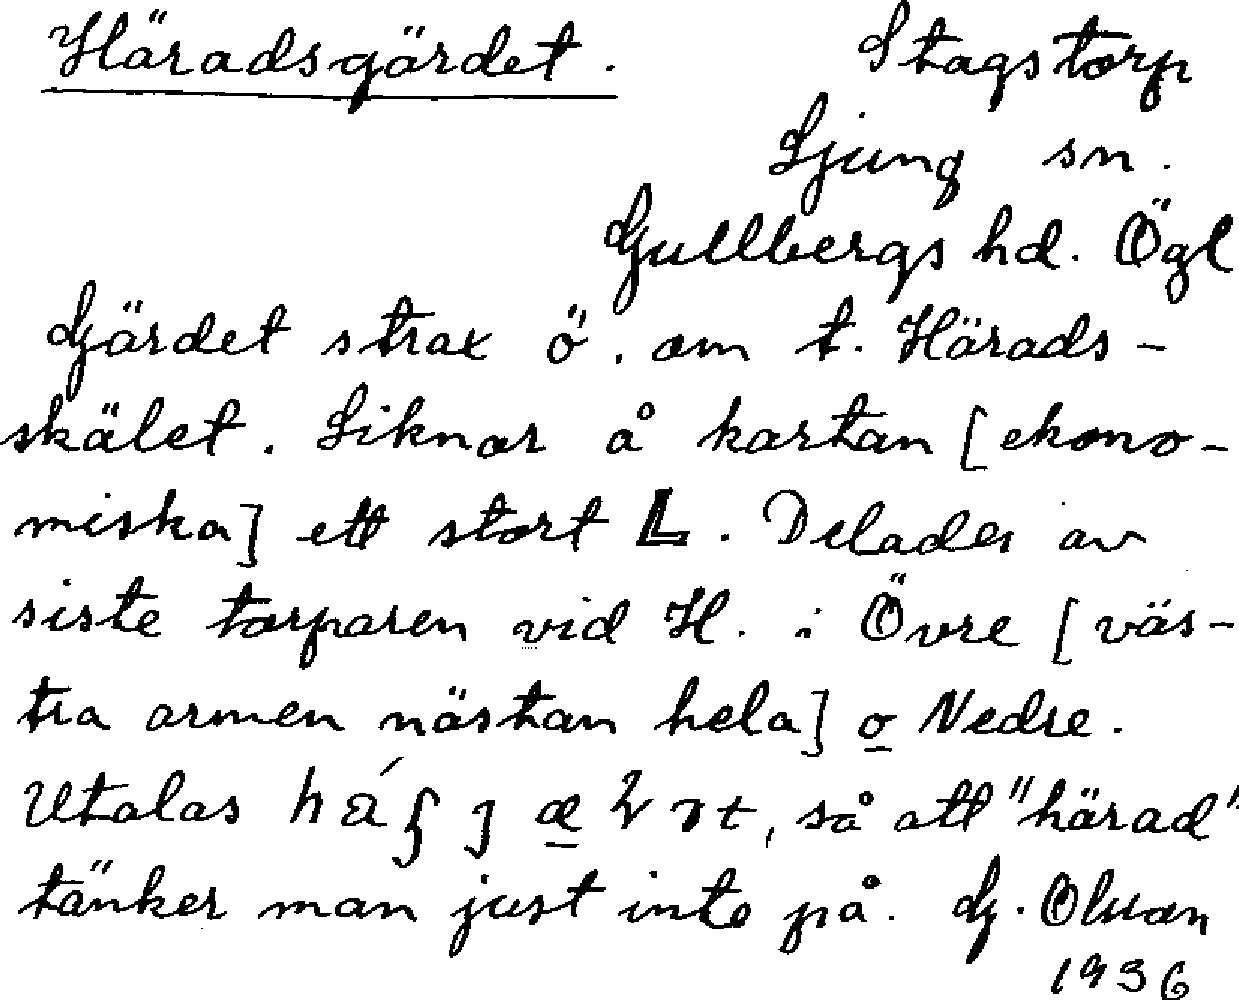 Häradsgärdet. Stagstorp
Ljung sn.
Gullbergs hd. Ögl
Gärdet strax ö. om t. Härads-
skälet. Liknar å kartan [ekono-
miska] ett stort L. Delades av
siste torparen vid H. i Övre [väs-
tra armen nästan hela] o Nedre.
Uttalas så att "härad"
tänker man just inte på. G. Olsson
1936